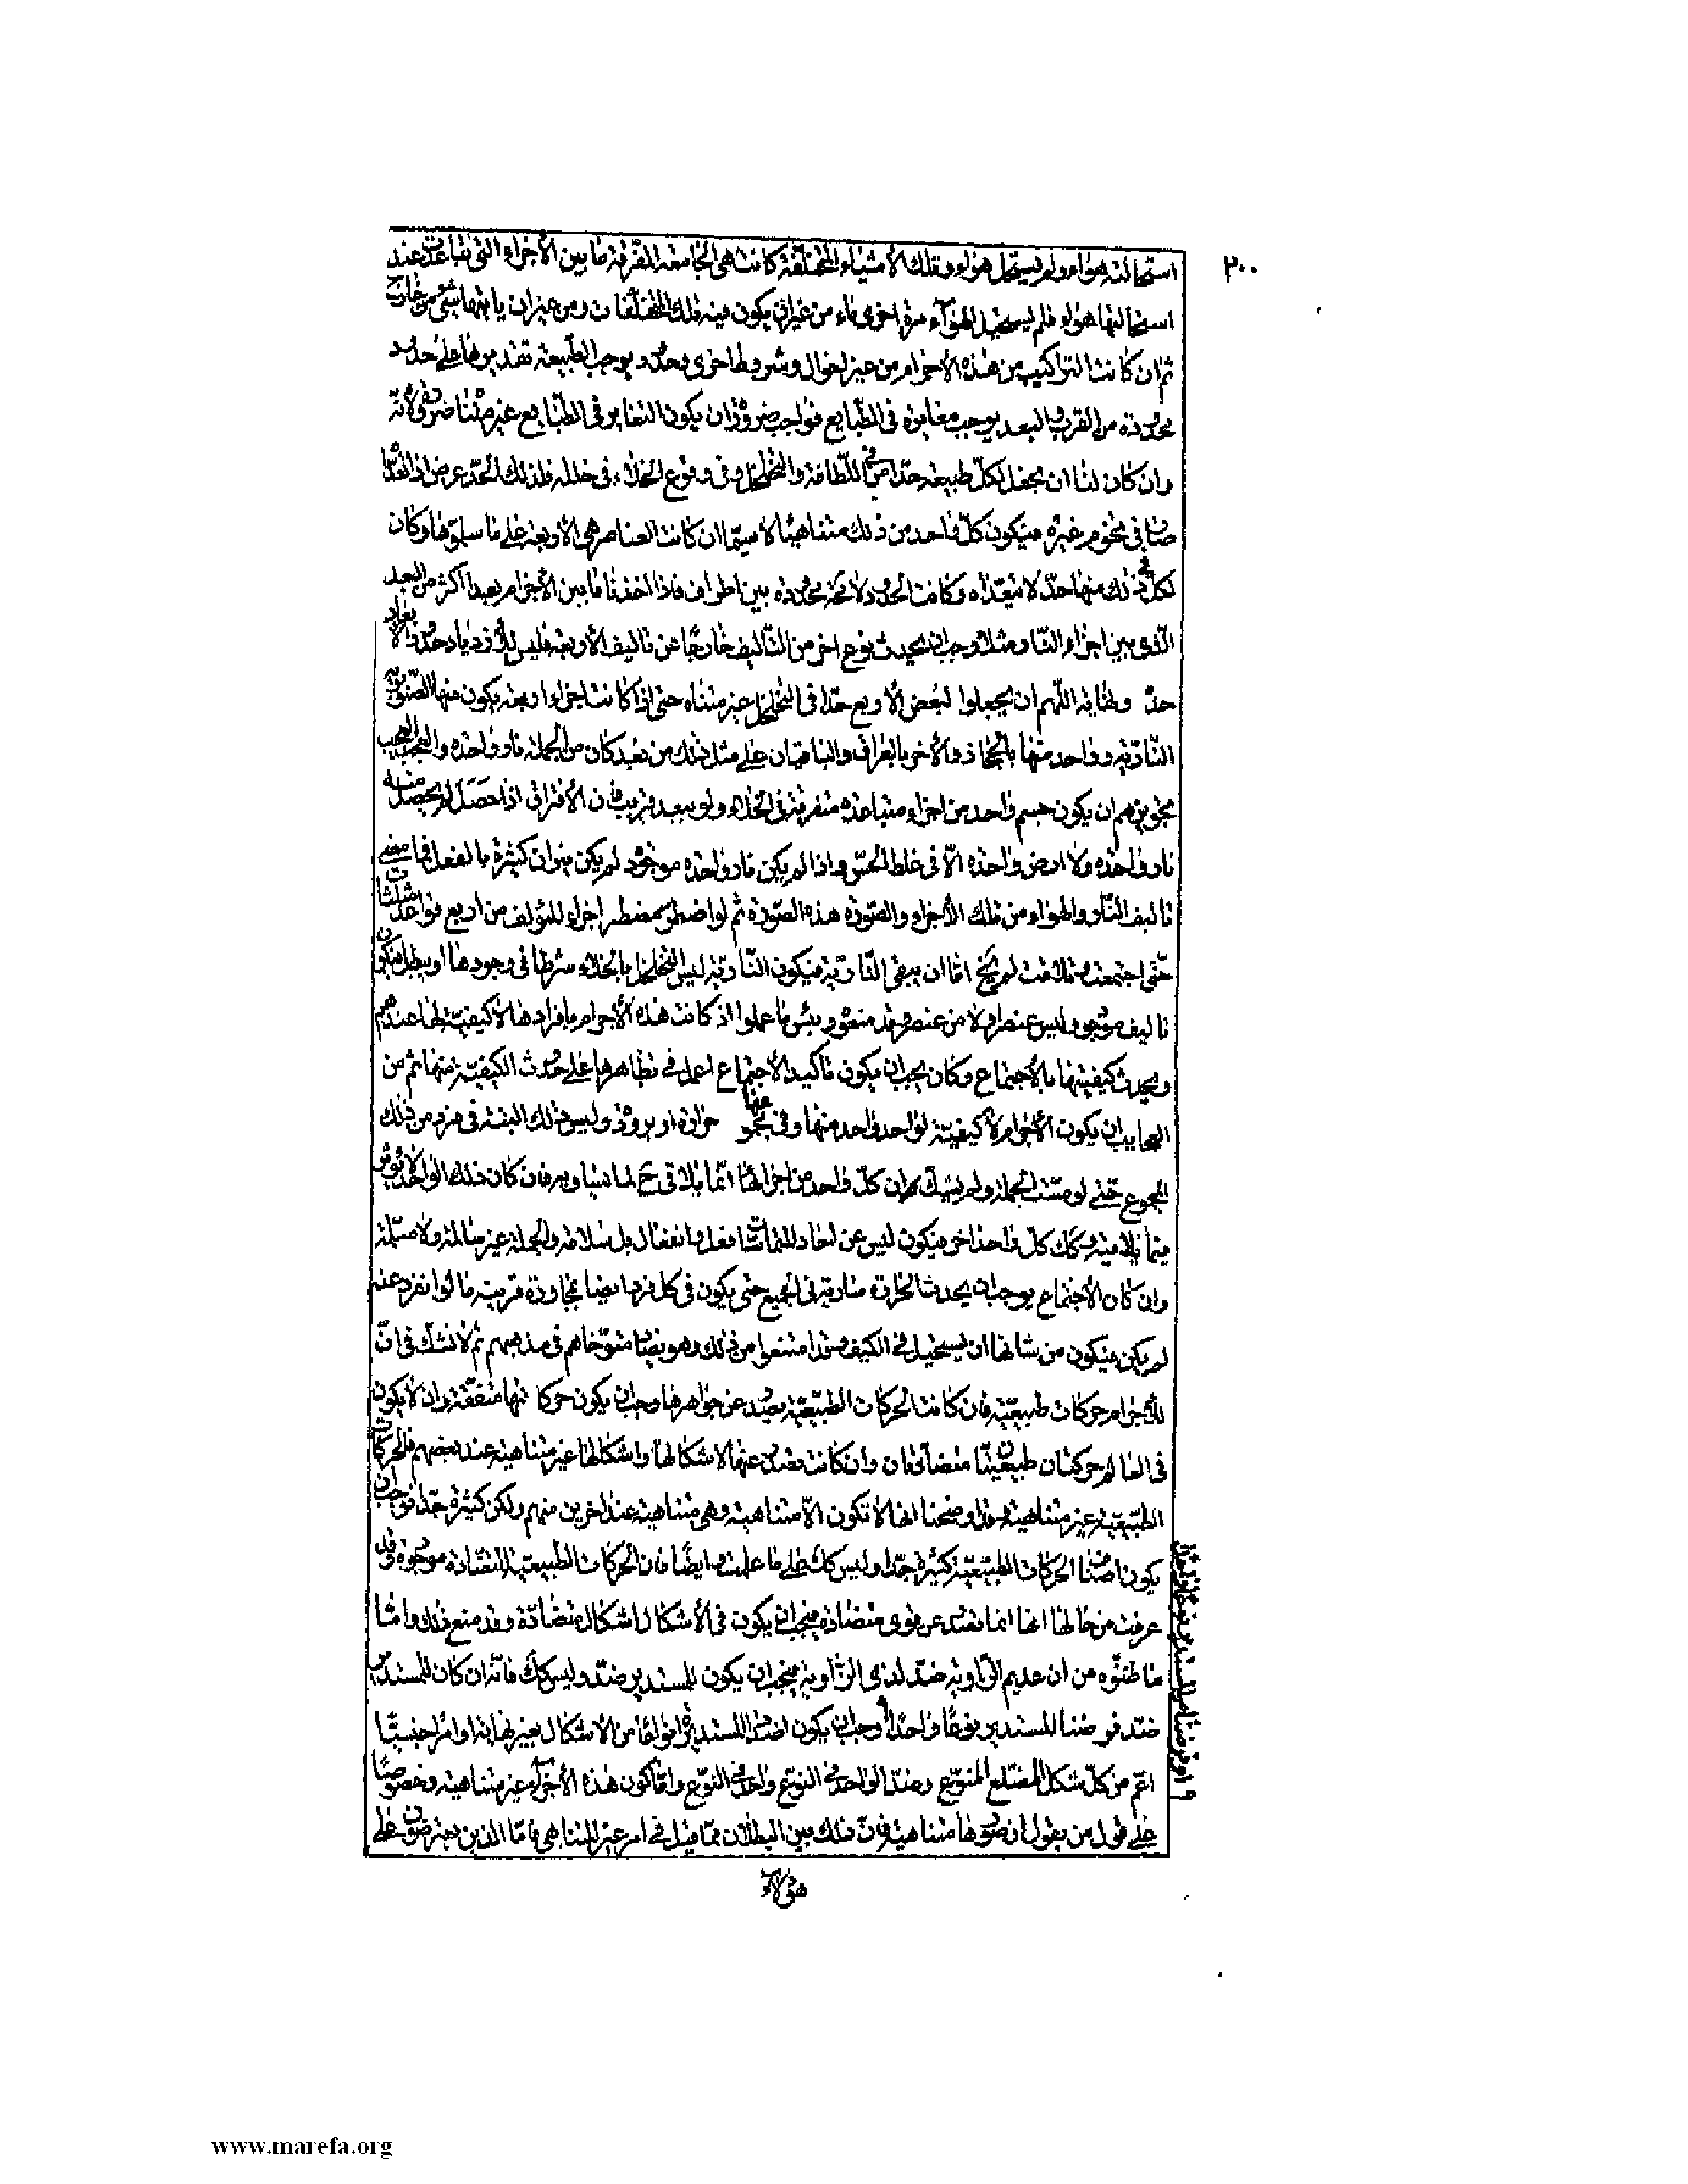 ٢٠٠
استحالته هواء ولم يستحل هواء وتلك الأشياء المختلفة كانت هى الجامعة المفرقة ما بين الأجزاء التى تباعدت عند
استحالتها هواء فلم يستحيل الهواء مرة اخرى ماء من غير ان يكون فيه تلك المختلفات ومن غير ان ياتيها شئ من خارج
ثم ان كانت التراكيب من هذه الأجرام من غير احوال وشروط اخرى وحدود يوجب الطبيعة تقديرها على حدود
محدودة من القرب والبعد يوجب مغايرة فى الطبايع فواجب ضرورة ان يكون التغاير فى الطبايع غير متناه ضرورة لأنه
وان كان لنا ان نجعل لكل طبيعة حدا من اللطافة والتخلخل وفى وقوع الخلاء فى خلله فلذلك الحد عرض اذا تعداه
صار فى تخوم غيره فيكون كل واحد من ذلك متناهيا لا سيما ان كانت العناصر هى الأربعة على ما سبق وكان
لكل من ذلك منها حد لا تتعداه وكانت الحدود لا محة محدودة بين اطراف فاذا اخذنا ما بين الأجرام بعدا اكثر من البعد
الذى بين اجزاء النار مثلا وجب ان يحدث نوع اخر من التأليف خارجا عن تاليف الأربعة فليس لازدياد حدود الأبعاد
حد ونهاية اللهم ان يجعلوا لبعض الأربع حدا فى التخلخل غير متناه حتى اذا كانت اجزاء اربعة يكون منها الصورة
النارية وواحد منها بالحجاز والأخر بالعراق والباقيان على مثل ذلك من بعد كان من الجملة نار واحدة والعجب العجب
تجويزهم ان يكون جسم واحد من اجزاء متباعدة متفرقة فى الخلاء ولو ببعد قريب فان الأفتراق اذا حصل لم يحصل منه
نار واحدة ولا ارض واحدة الا فى غلط الحس واذا لم يكن نار واحدة موجود لم يكن نيران كثيرة بالفعل فما معنى
تاليف النار والهواء من تلك الأجزاء والصورة هذه الصورة ثم لو اضطر مضطر اجزاء المؤلف من اربع قواعد مثلثات
حتى اجتمعت وتلاقت لم يخ اما ان يبقى النارية فيكون النارية ليس التخلخل بالخلاء شرطا فى وجودها او يبطل فيكون
تاليف موجود وليس عنصر ولا من عنصر وقد منعوه وبئس ما عملوا اذ كانت هذه الأجرام بافرادها لا كيفية لها عندهم
ويحدث كيفيتها بالأجتماع وكان يجب ان يكون تاكيد الأجتماع اعمل فى تظاهرها على حدوث الكيفية منها ثم من
العجايب ان يكون الأجرام لا كيفية لواحد واحد منها وفى مجموعها حرارة او برودة وليس ذلك البتة فى فرد من تلك
المجموع حتى لو مست الجملة ولم يشك ان كل واحد من اجزائها انما يلاقى ح لما يساويه فان كان ذلك الواحد لا يؤثر
فيما يلاقيه وكك كل واحد اخر فيكون ليس عن احاد المماسات فعل وانفعال بل سلامة والجملة غير سالمة ولا مسلمة
وان كان الأجتماع يوجب ان يحدث الحرارة متادية فى الجميع حتى يكون فى كل فرد ايضا بمجاورة قرينه ما لو انفرد عنه
لم يكن فيكون من شانها ان يستحيل فى الكيف وقد امتنعوا من ذلك وهو ايضا متوخاهم فى مذهبهم ثم لا نشك فى ان
للأجرام حركات طبيعية فان كانت الحركات الطبيعية تصدر عن جواهرها وجب ان يكون حركاتها متفقة وان لا يكون
فى العالم حركتان طبيعيتان متضادتان وان كانت تصدر عنها لاشكالها واشكالها غير متناهية عند بعضهم فالحركات
الطبيعية غير متناهية وقد اوضحنا انها لا تكون الا متناهية وهى متناهية عند اخرين منهم ولكن كثيرة جدا فوجب ان
يكون اصناف الحركات الطبيعية كثيرة جدا وليس كك على ما علمت وايضا فان الحركات الطبيعية المتضادة موجودة وقد
عرفت من حالها انها انما تصدر عن قوى متضادة فيجب ان يكون فى الأشكال اشكال متضادة وقد منع ذلك واما
ما ظنوه من ان عديم الزاوية ضد لذى الزاوية فيجب ان يكون للمستدير ضد وليس كك فانه ان كان للمستدير
ضد فرضنا المستدير نوعا واحدا وجب ان يكون اضداد المستدير انواعا من الاشكال بغير نهاية او امرا جنسيا
اعم من كل شكل المضلع المنوع وضد الواحد فى النوع واحد فى النوع واما كون هذه الأجرام غير متناهية وخصوصا
على قول من يقول ان صورها متناهية فان ذلك بين البطلان مما قيل فى امر غير المتناهى فاما الذين يعترضون على
هؤلاء
www.marefa.org